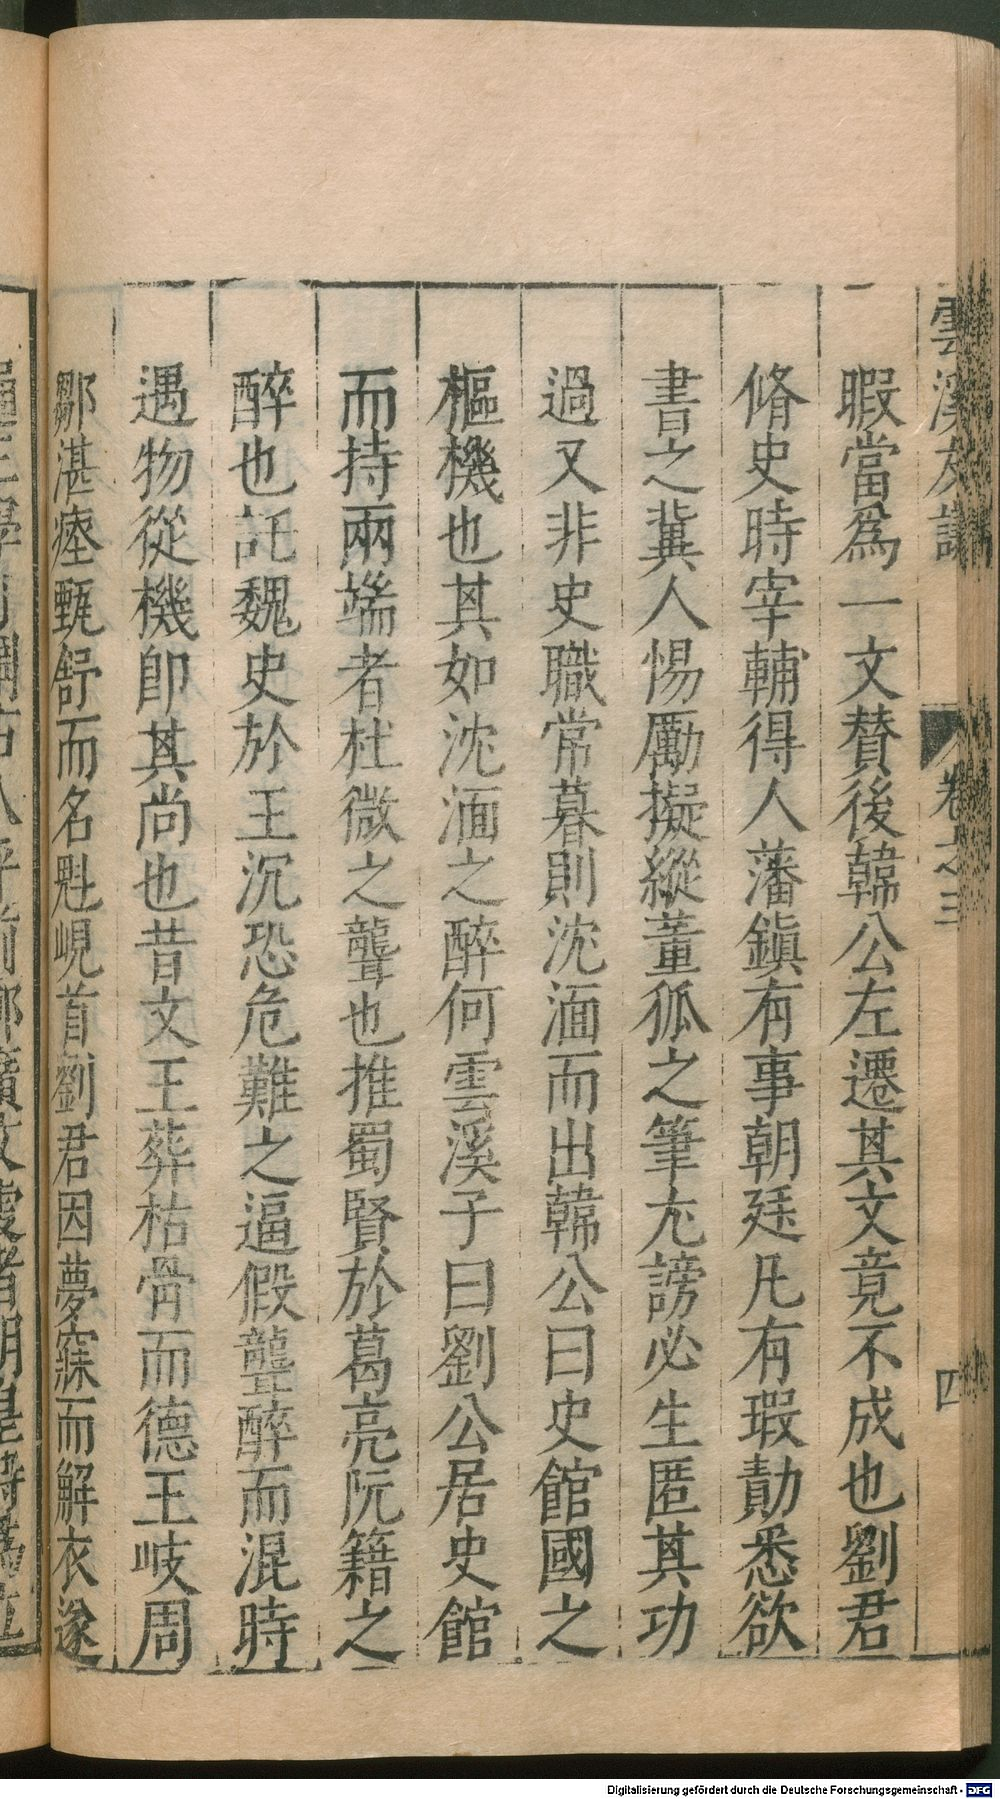 雲溪友議 卷之三 四
暇當爲一文贊後韓公左遷其文竟不成也劉君
脩史時宰輔得人藩鎭有事朝廷凡有瑕勣悉欲
書之冀人惕厲擬縱董狐之筆尤謗必生匿其功
過又非史職常暮則沈湎而出韓公曰史館國之
樞機也其如沈湎之醉何雲溪子曰劉公居史館
而持兩端者杜微之聾也推蜀賢於葛亮阮籍之
醉也託魏史於王沉恐危難之逼假聾醉而混時
遇物從機卽其尚也昔文王葬枯骨而德王岐周
鄒湛瘞甄舒而名魁峴首劉君因夢寐而解衣遂
Digitalisierung gefördert durch die Deutsche Forschungsgemeinschaft - DFG